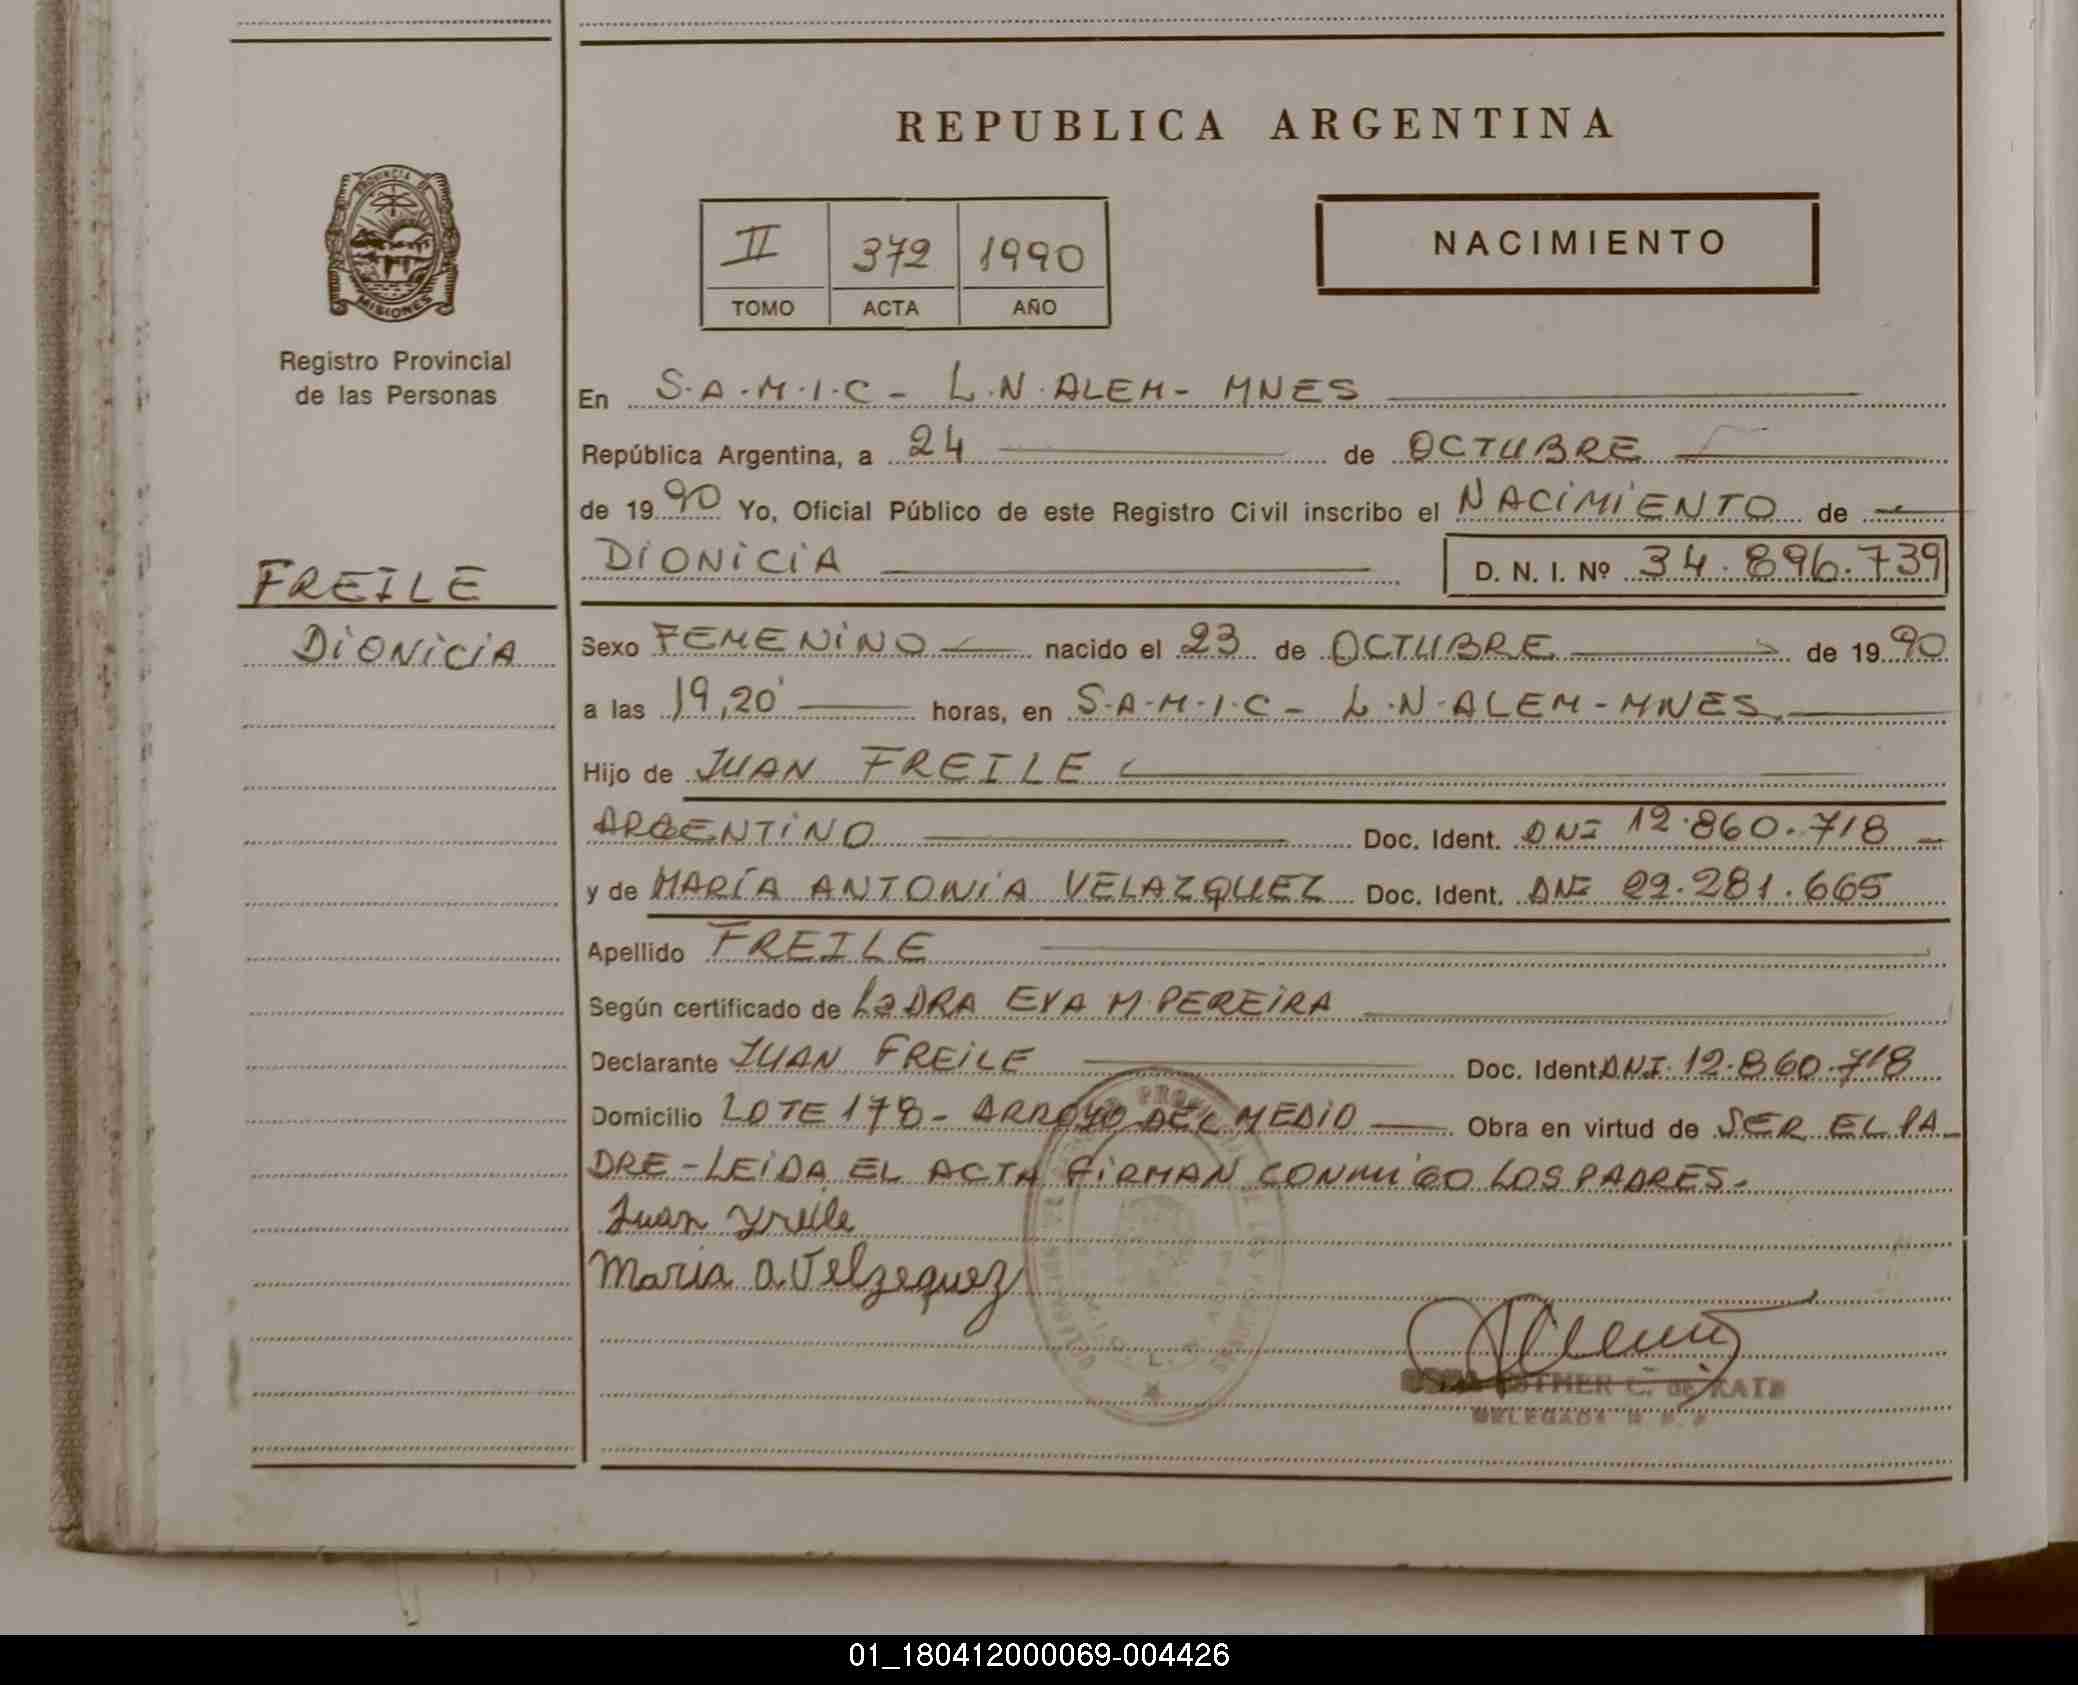 REPUBLICA ARGENTINA
PROVINCIA DE
MISIONES
Registro Provincial
de las Personas
II 372 1990
TOMO ACTA AÑO
NACIMIENTO
En S.A.M.I.C - L.N.ALEM - MNES
República Argentina, a 24 de OCTUBRE
de 1990 Yo, Oficial Público de este Registro Civil inscribo el NACIMIENTO de
DIONICIA D. N. I. Nº 34.896.739
FREILE
DIONICIA
Sexo FEMENINO nacido el 23 de OCTUBRE de 1990
a las 19,20' horas, en S.A.M.I.C - L.N.ALEM - MNES.
Hijo de JUAN FREILE
ARGENTINO Doc. Ident. DNI 12.860.718
y de MARÍA ANTONIA VELAZQUEZ Doc. Ident. DNI 29.281.665
Apellido FREILE
Según certificado de La DRA EVA M. PEREIRA
Declarante JUAN FREILE Doc. Ident. DNI. 12.860.718
Domicilio LOTE 178 - ARROYO DEL MEDIO Obra en virtud de SER EL PA-
DRE - LEIDA EL ACTA FIRMAN CONMIGO LOS PADRES.
Juan Freile
Maria A. Velzequez
ESTHER C. de
DELEGADA
01_180412000069-004426